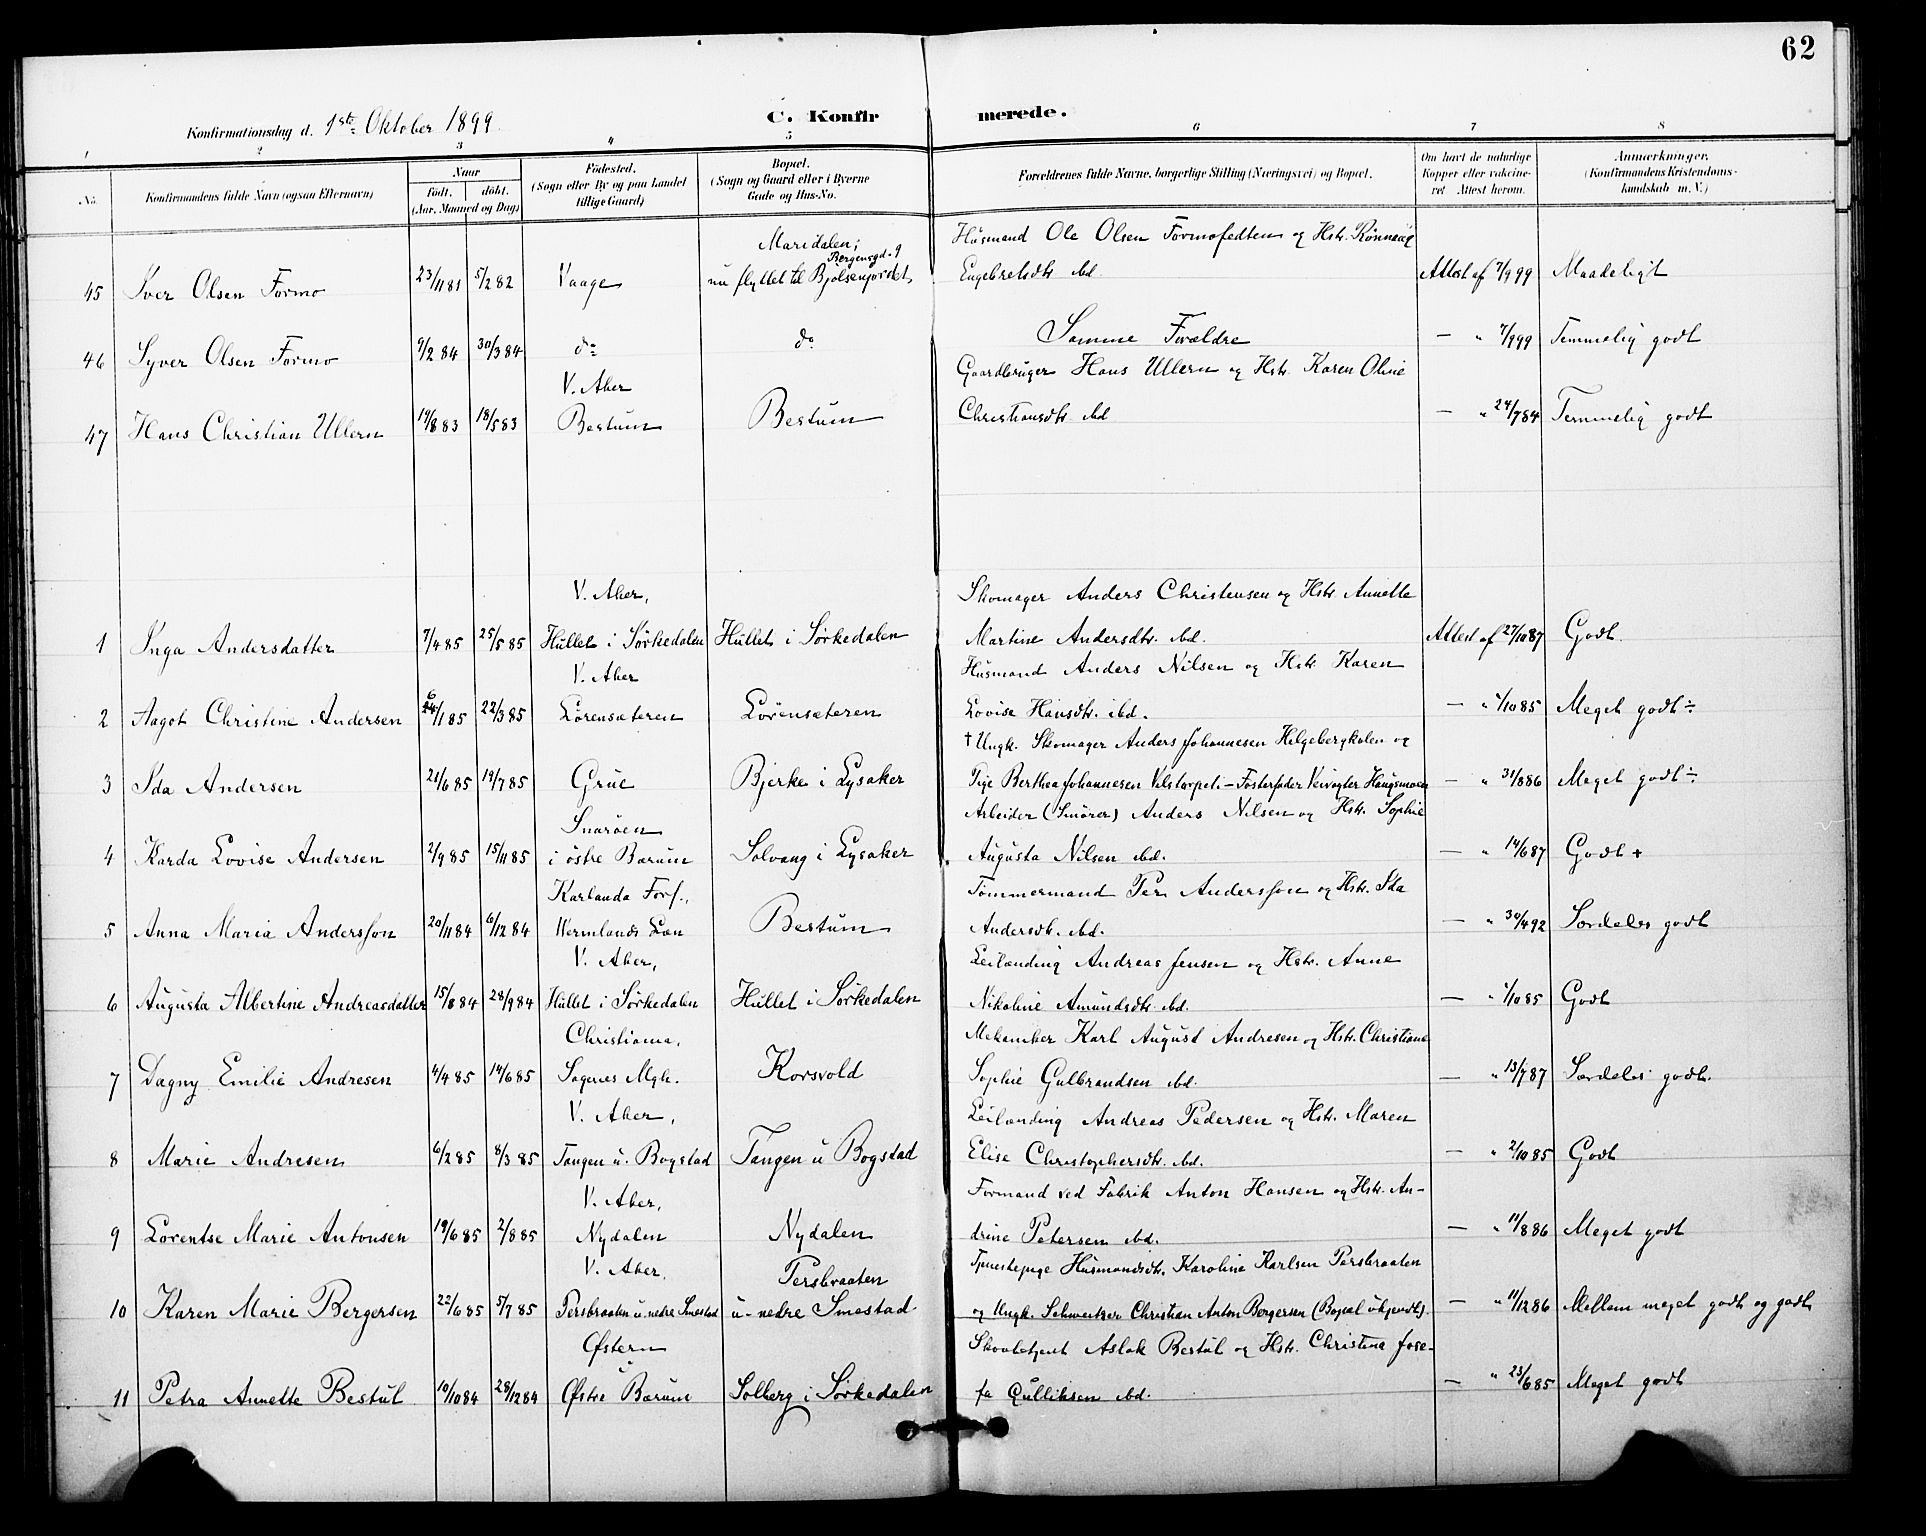 62
Konfirmationsdag d. 1ste Oktober 1899.
C. Konfirmerede.
1 2 3 4 5 6 7 8
No. Konfirmandens fulde Navn (ogsaa Efternavn) Naar født. døbt. (Aar, Maaned og Dag) Fødested. (Sogn eller By og paa Landet tillige Gaard) Bopæl. (Sogn og Gaard eller i Byerne Gade og Hus-No. Forældrenes fulde Navne, borgerlige Stilling (Næringsvei) og Bopæl. Om havt de naturlige Kopper eller vaccineret Attest herom. Anmærkninger. (Konfirmandens Kristendomskundskab m. V.)
Maridalen; Husmand Ole Olsen Formofedten og Hstr. Rønnaug
Bergensgd. 9
45 Iver Olsen Formo 23/11 81 5/2 82 Vaage nu flyttet til Bjølsenjordet Engebretsdtr. ibd. Attest af 7/9 99 Maadeligt
46 Syver Olsen Formo 9/2 84 30/3 84 do do Samme Forældre — " 7/9 99 Temmelig godt
V. Aker Gaardbruger Hans Ullern og Hstr. Karen Oline
47 Hans Christian Ullern 14/3 83 18/5 83 Bestum Bestum Christiansdtr. ibd — " 24/7 84 Temmelig godt
V. Aker, Skomager Anders Christensen og Hstr. Annette
1 Inga Andersdatter 7/4 85 25/5 85 Hullet i Sørkedalen Hullet i Sørkedalen Martine Andersdtr. ibd. Attest af 27/10 87 Godt.
V. Aker Husmand Anders Nilsen og Hstr. Karen
2 Aagot Christine Andersen 6/1 85 22/3 85 Lørensæteren Lørensæteren Lovise Hansdtr. ibd. — " 1/10 85 Meget godt ÷
† Ungk. Skomager Anders Johannesen Helgebergkolen og
3 Ida Andersen 21/6 85 19/7 85 Grue Bjerke i Lysaker Pige Berthea Johannesen Vilstorpet. — Fosterfader Veivogter Haugsmoen — " 31/8 86 Meget godt ÷
Snarøen Arbeider (Smører) Anders Nilsen og Hstr. Sophie
4 Karda Lovise Andersen 2/9 85 15/11 85 i østre Bærum Solvang i Lysaker Augusta Nilsen ibd. — " 14/6 87 Godt +
Karlanda Fors., Tømmermand Per Andersson og Hstr. Ida
5 Anna Maria Andersson 20/11 84 6/12 84 Wermlands Læn Bestum Andersdtr. ibd. — " 30/4 92 Særdeles godt
V. Aker, Leilænding Andreas Jensen og Hstr. Anne
6 Augusta Albertine Andreasdatter 15/8 84 28/9 84 Hullet i Sørkedalen Hullet i Sørkedalen Nikoline Amundsdtr. ibd. — " 1/10 85 Godt
Christiania, Mekaniker Karl August Andresen og Hstr. Christiane
7 Dagny Emilie Andresen 4/4 85 14/6 85 Sagenes Mgh. Korsvold Sophie Gulbrandsen ibd. — " 13/7 87 Særdeles godt.
V. Aker, Leilænding Andreas Pedersen og Hstr. Maren
8 Marie Andresen 6/2 85 8/3 85 Tangen u. Bogstad Tangen u Bogstad Elise Christophersdtr. ibd. — " 2/10 85 Godt
V. Aker, Formand ved Fabrik Anton Hansen og Hstr. An-
9 Lorentse Marie Antonsen 19/6 85 2/8 85 Nydalen Nydalen drine Petersen ibd. — " 11/8 86 Meget godt
V. Aker. Persbraaten Tjenestepige Husmandsdtr. Karoline Karlsen Persbraaten
10 Karen Marie Bergersen 22/6 85 5/7 85 Persbraaten u. nedre Smestad u. nedre Smestad og Ungk. Schweitzer Christian Anton Bergersen (Bopæl ukjendt). — " 11/12 86 Mellem meget godt og godt
Østern Skovbetjent Aslak Bestul og Hstr. Christina Jose-
11 Petra Annette Bestul 10/10 84 28/12 84 i Østre Bærum Solberg i Sørkedalen fa Gulliksen ibd. — " 23/6 85 Meget godt